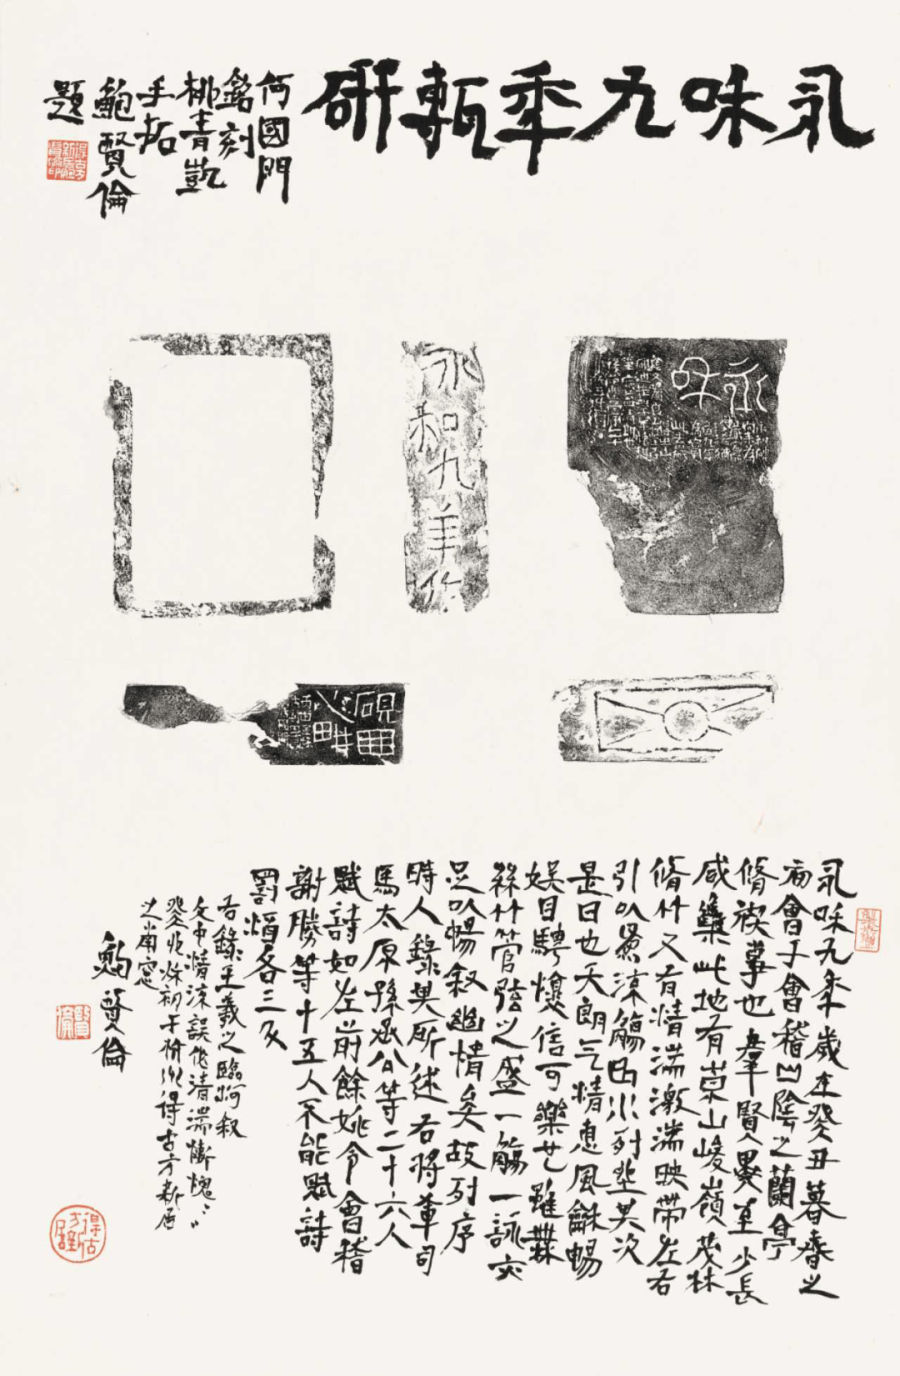 永和九年甎研
何國門
銘刻
桃青凱
手拓
鮑賢倫
題
永和
永和九年作
硯田
心畊
永和九年歲在癸丑暮春之
初會于會稽山陰之蘭亭
脩禊事也羣賢畢至少長
咸集此地有崇山峻嶺茂林
脩竹又有清湍激湍映帶左右
引以為流觴曲水列坐其次
是日也天朗气清惠風龢暢
娛目騁懷信可樂也雖無
絲竹管弦之盛一觴一詠亦
足以暢敘幽情矣故列序
時人錄其所述右將軍司
馬太原孫丞公等二十六人
賦詩如左前餘姚令會稽
謝勝等十五人不能賦詩
罰酒各三斗
右錄王羲之臨河敘
文中清流誤作清湍慚愧慚愧
癸卯秋初于杭州得古方新居
之南窗
鮑賢倫